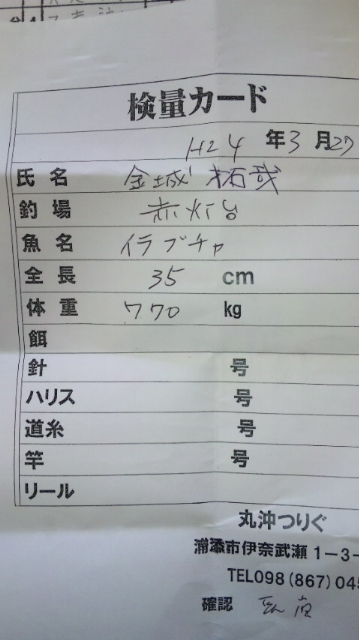 検量カード
H24年3月27
氏名 金城 拓哉
釣場 赤灯台
魚名 イラブチャ
全長 35 cm
体重 770 kg
餌
針 号
ハリス 号
道糸 号
竿 号
リール
丸沖つりぐ
浦添市伊奈武瀬1-3-
TEL098(867)045
確認